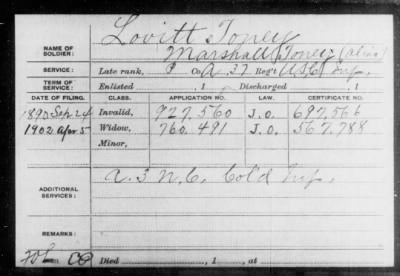 Lovitt Toney
NAME OF SOLDIER: Marshall Toney (alias)
SERVICE: Late rank, P Co. A, 37 Reg't U.S.C. Inf.,
TERM OF SERVICE: Enlisted , 1 Discharged , 1
DATE OF FILING. CLASS. APPLICATION NO. LAW. CERTIFICATE NO.
1890 Sep 24 Invalid, 927.560 J.O. 697.566
1902 Apr 5 Widow, 760.491 J.O. 567.788
Minor,
ADDITIONAL SERVICES: A. 3 N.C. Cold Inf.
REMARKS:
CO Died , 1 , at